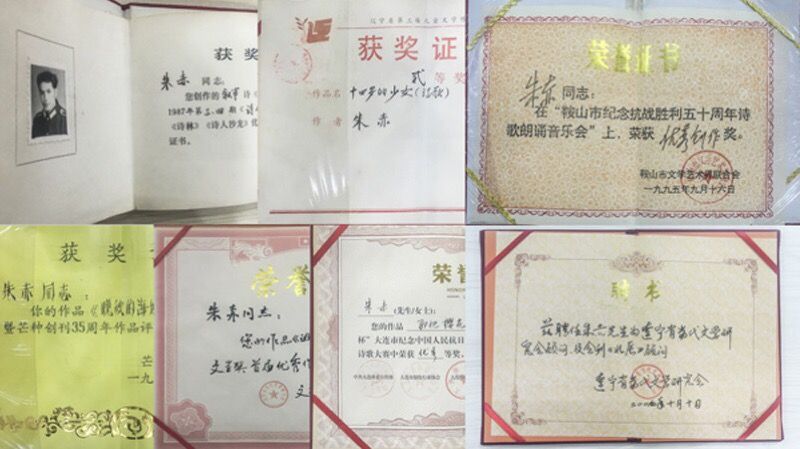 获奖
朱赤同志:
您创作的叙事诗《
1987年第三、四期《诗
《诗林》《诗人沙龙》优
证书。
辽宁省第三届儿童文学
获奖证
贰等奖
作品名 十四岁的少女(诗歌)
作者 朱赤
荣誉证书
朱赤同志:
在“鞍山市纪念抗战胜利五十周年诗
歌朗诵音乐会”上,荣获优秀创作奖。
鞍山市文学艺术界联合会
一九九五年九月十六日
获奖
朱赤同志:
你的作品《晚秋的海
暨芒种创刊35周年作品评
芒
一九
荣誉
朱赤同志:
您的作品《
文学奖首届优秀作
文
荣誉
HONOR
朱赤(先生/女士):
您的作品
杯”大连市纪念中国人民抗日
诗歌大赛中荣获优秀等奖,
聘书
兹聘任朱赤先生为辽宁省当代文学研
究会顾问及会刊
顾问
辽宁省当代文学研究会
十月十日